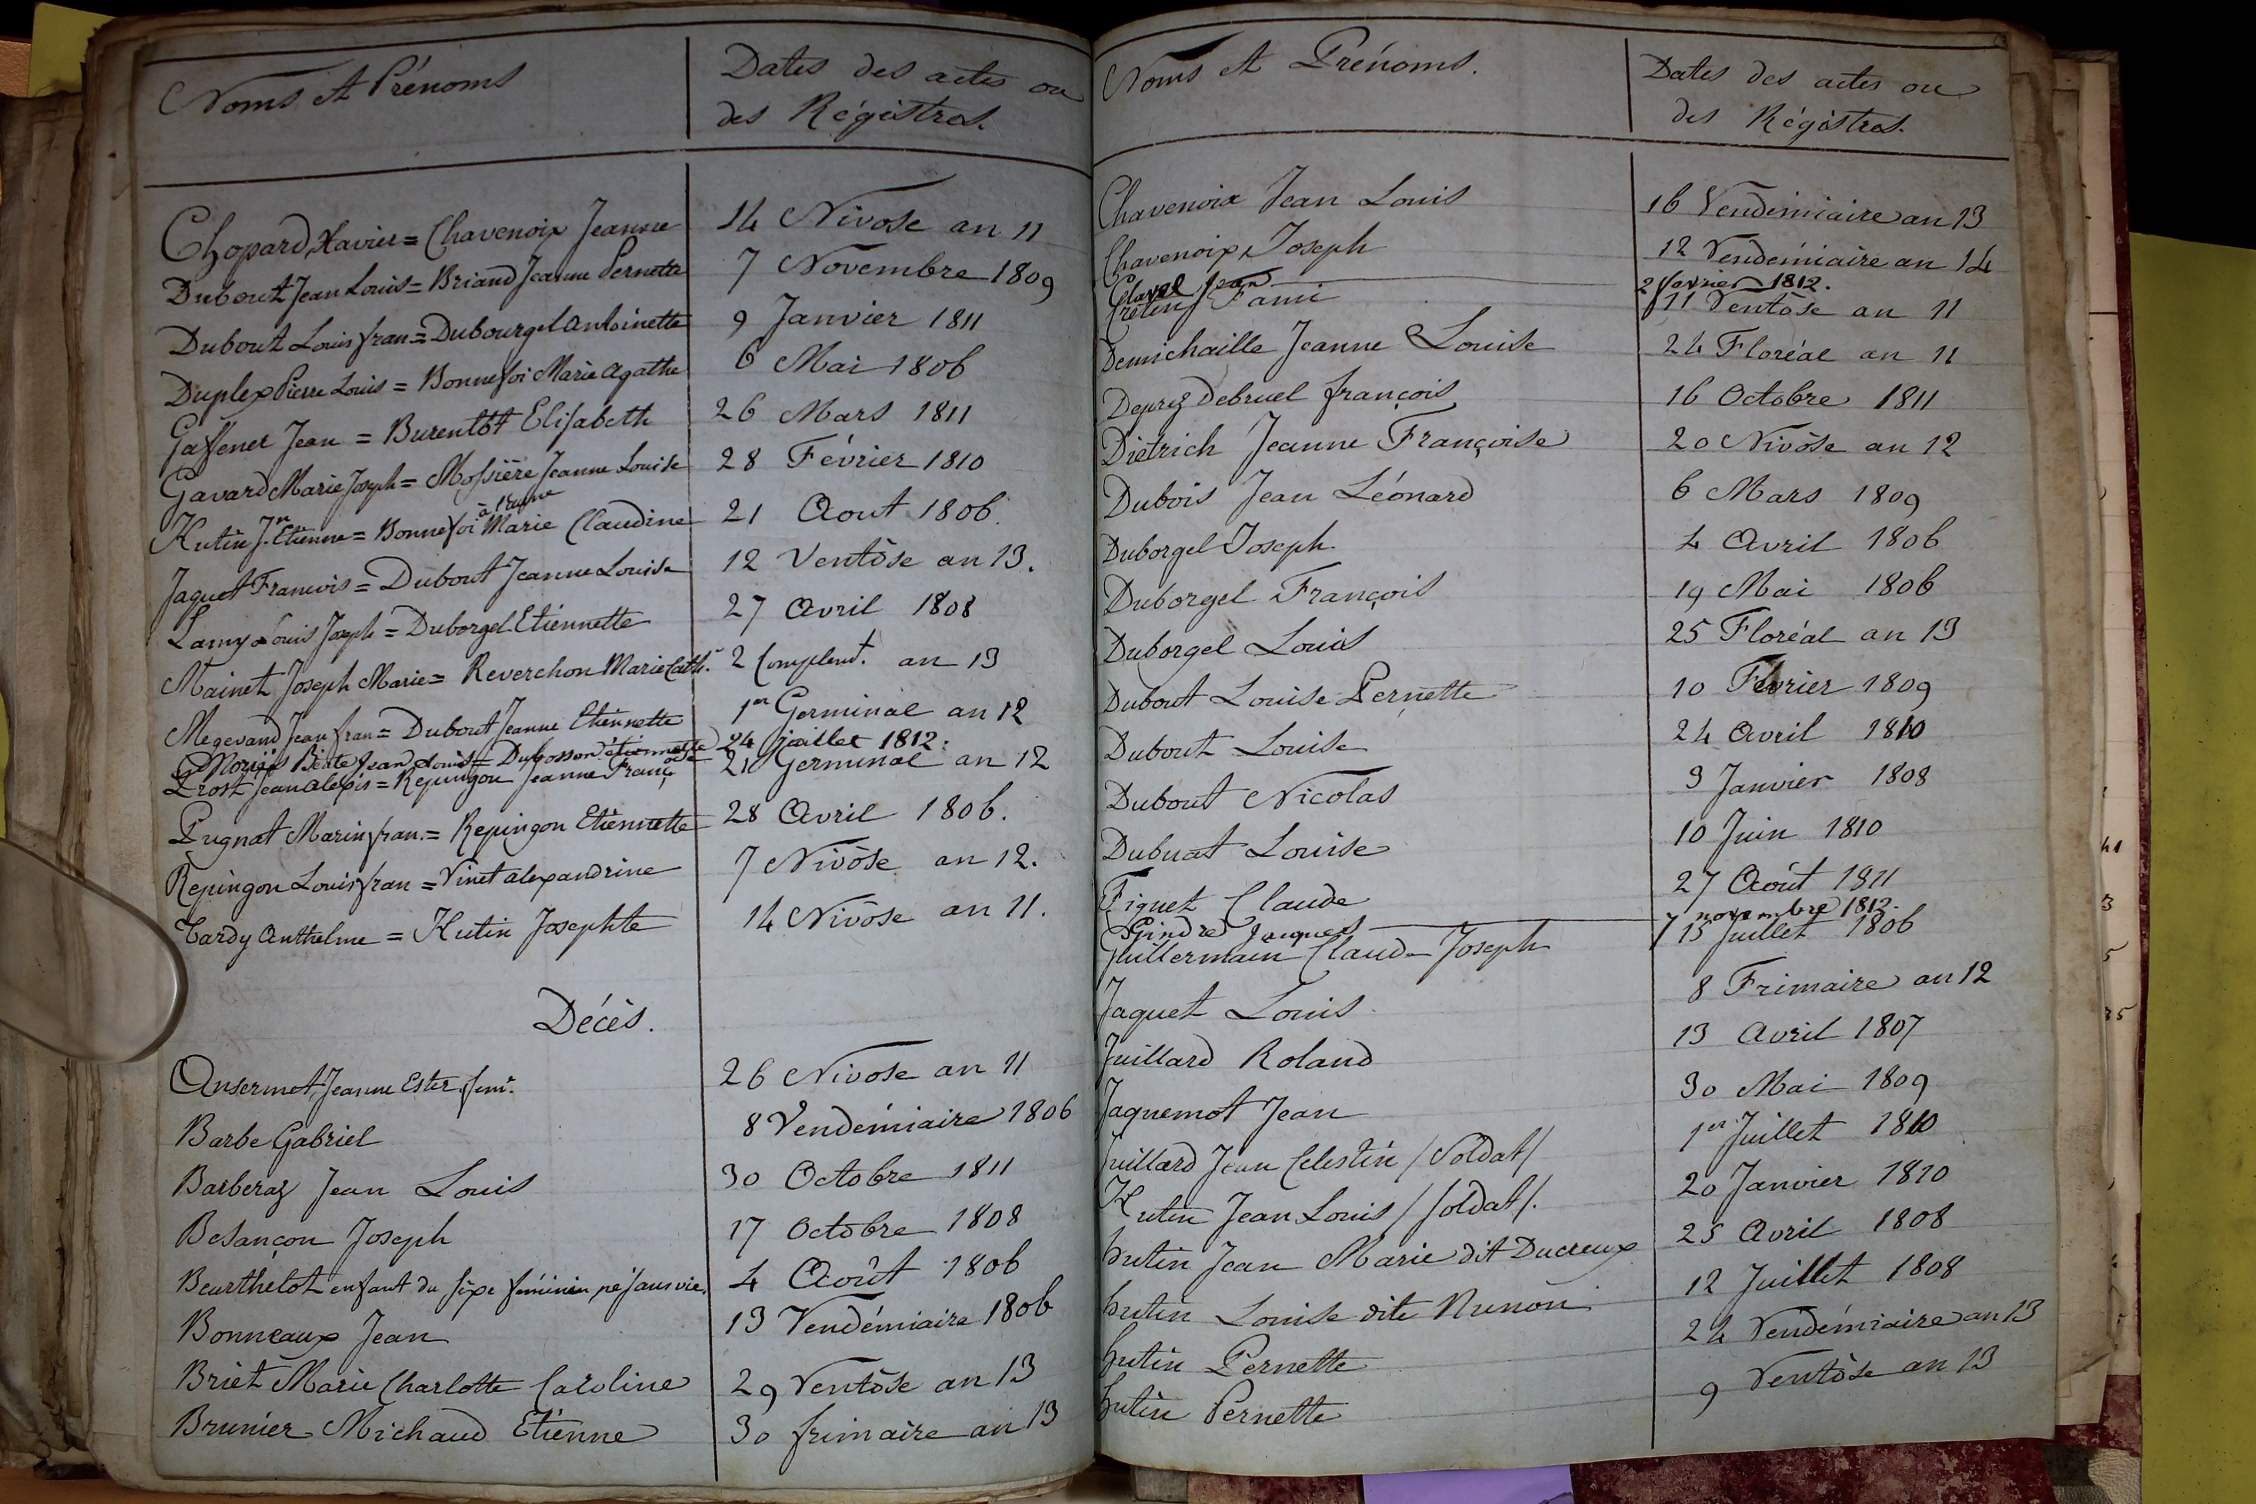 Noms et Prénoms
Dates des actes ou
des Régistres.
Chopard Xavier = Chavenoix Jeanne 14 Nivose an 11
Dubout Jean Louis = Briand Jeanne Pernette 7 Novembre 1809
Dubout Louis fran = Dubourgel Antoinette 9 Janvier 1811
Duplex Pierre Louis = Bonnefoi Marie Agathe 6 Mai 1806
Gaffener Jean = Burentôt Elisabeth 26 Mars 1811
Gavard Marie Joseph = Mossière Jeanne Louise 28 Février 1810
Hutin J.n Etienne = Bonnefoi Marie Claudine 21 Aout 1806.
Jaquet Francois = Dubout Jeanne Louise 12 Ventôse an 13.
Lamy Louis Joseph = Duborgel Etiennette 27 Avril 1808
Mainet Joseph Marie = Reverchon Marie Cath. 2 Complemt. an 13
Megevand Jean fran = Dubout Jeanne Etiennette 1er Germinal an 12
Jean Louis = Dubosson étiennette 24 juillet 1812.
Prost Jean Alexis = Repingon Jeanne Franç.oise 21 Germinal an 12
Pugnat Marin fran. = Repingon Etiennette 28 Avril 1806.
Repingon Louis fran = Vinet alexandrine 7 Nivôse an 12.
Tardy Anthelme = Hutin Josephte 14 Nivôse an 11.
Décès.
Ansermet, Jeanne Ester fem. 26 Nivôse an 11
Barbe Gabriel 8 Vendémiaire 1806
Barberaz Jean Louis 30 Octobre 1811
Besançon Joseph 17 Octobre 1808
Beurthelot enfant du sixe féminin né sans vie. 4 Août 1806
Bonneaux Jean 13 Vendémiaire 1806
Briet Marie Charlotte Caroline 29 Ventôse an 13
Brunier Michaud Etienne 30 frimaire an 13
Noms et Prénoms.
Dates des actes ou
des Régistres.
Chavenoix Jean Louis 16 Vendémiaire an 13
Chavenoix Joseph 12 Vendémiaire an 14
Clavel Jean 2 favrier 1812.
Cretin Fami 11 Ventôse an 11
Demichaille Jeanne Louise 24 Floréal an 11
Deprez Debruel françois 16 Octobre 1811
Dietrich Jeanne Françoise 20 Nivôse an 12
Dubois Jean Léonard 6 Mars 1809
Duborgel Joseph 4 Avril 1806
Duborgel François 19 Mai 1806
Duborgel Louis 25 Floréal an 13
Dubout Louise Pernette 10 Février 1809
Dubout Louise 24 Avril 1810
Dubout Nicolas 3 Janvier 1808
Dubuat Louise 10 Juin 1810
Figuet Claude 27 Août 1811
Gindre Jaques 7 novembre 1812.
Guillermain Claude Joseph 15 Juillet 1806
Jaquet Louis 8 Frimaire an 12
Juillard Roland 13 Avril 1807
Jaquemot Jean 30 Mai 1809
Juillard Jean Celestin /Soldat/ 1er Juillet 1810
Hutin Jean Louis /soldat/. 20 Janvier 1810
hutin Jean Marie dit Ducreux 25 Avril 1808
hutin Louise dite Nunon 12 Juillet 1808
hutin Pernette 24 Vendémiaire an 13
hutin Pernette 9 Ventôse an 13